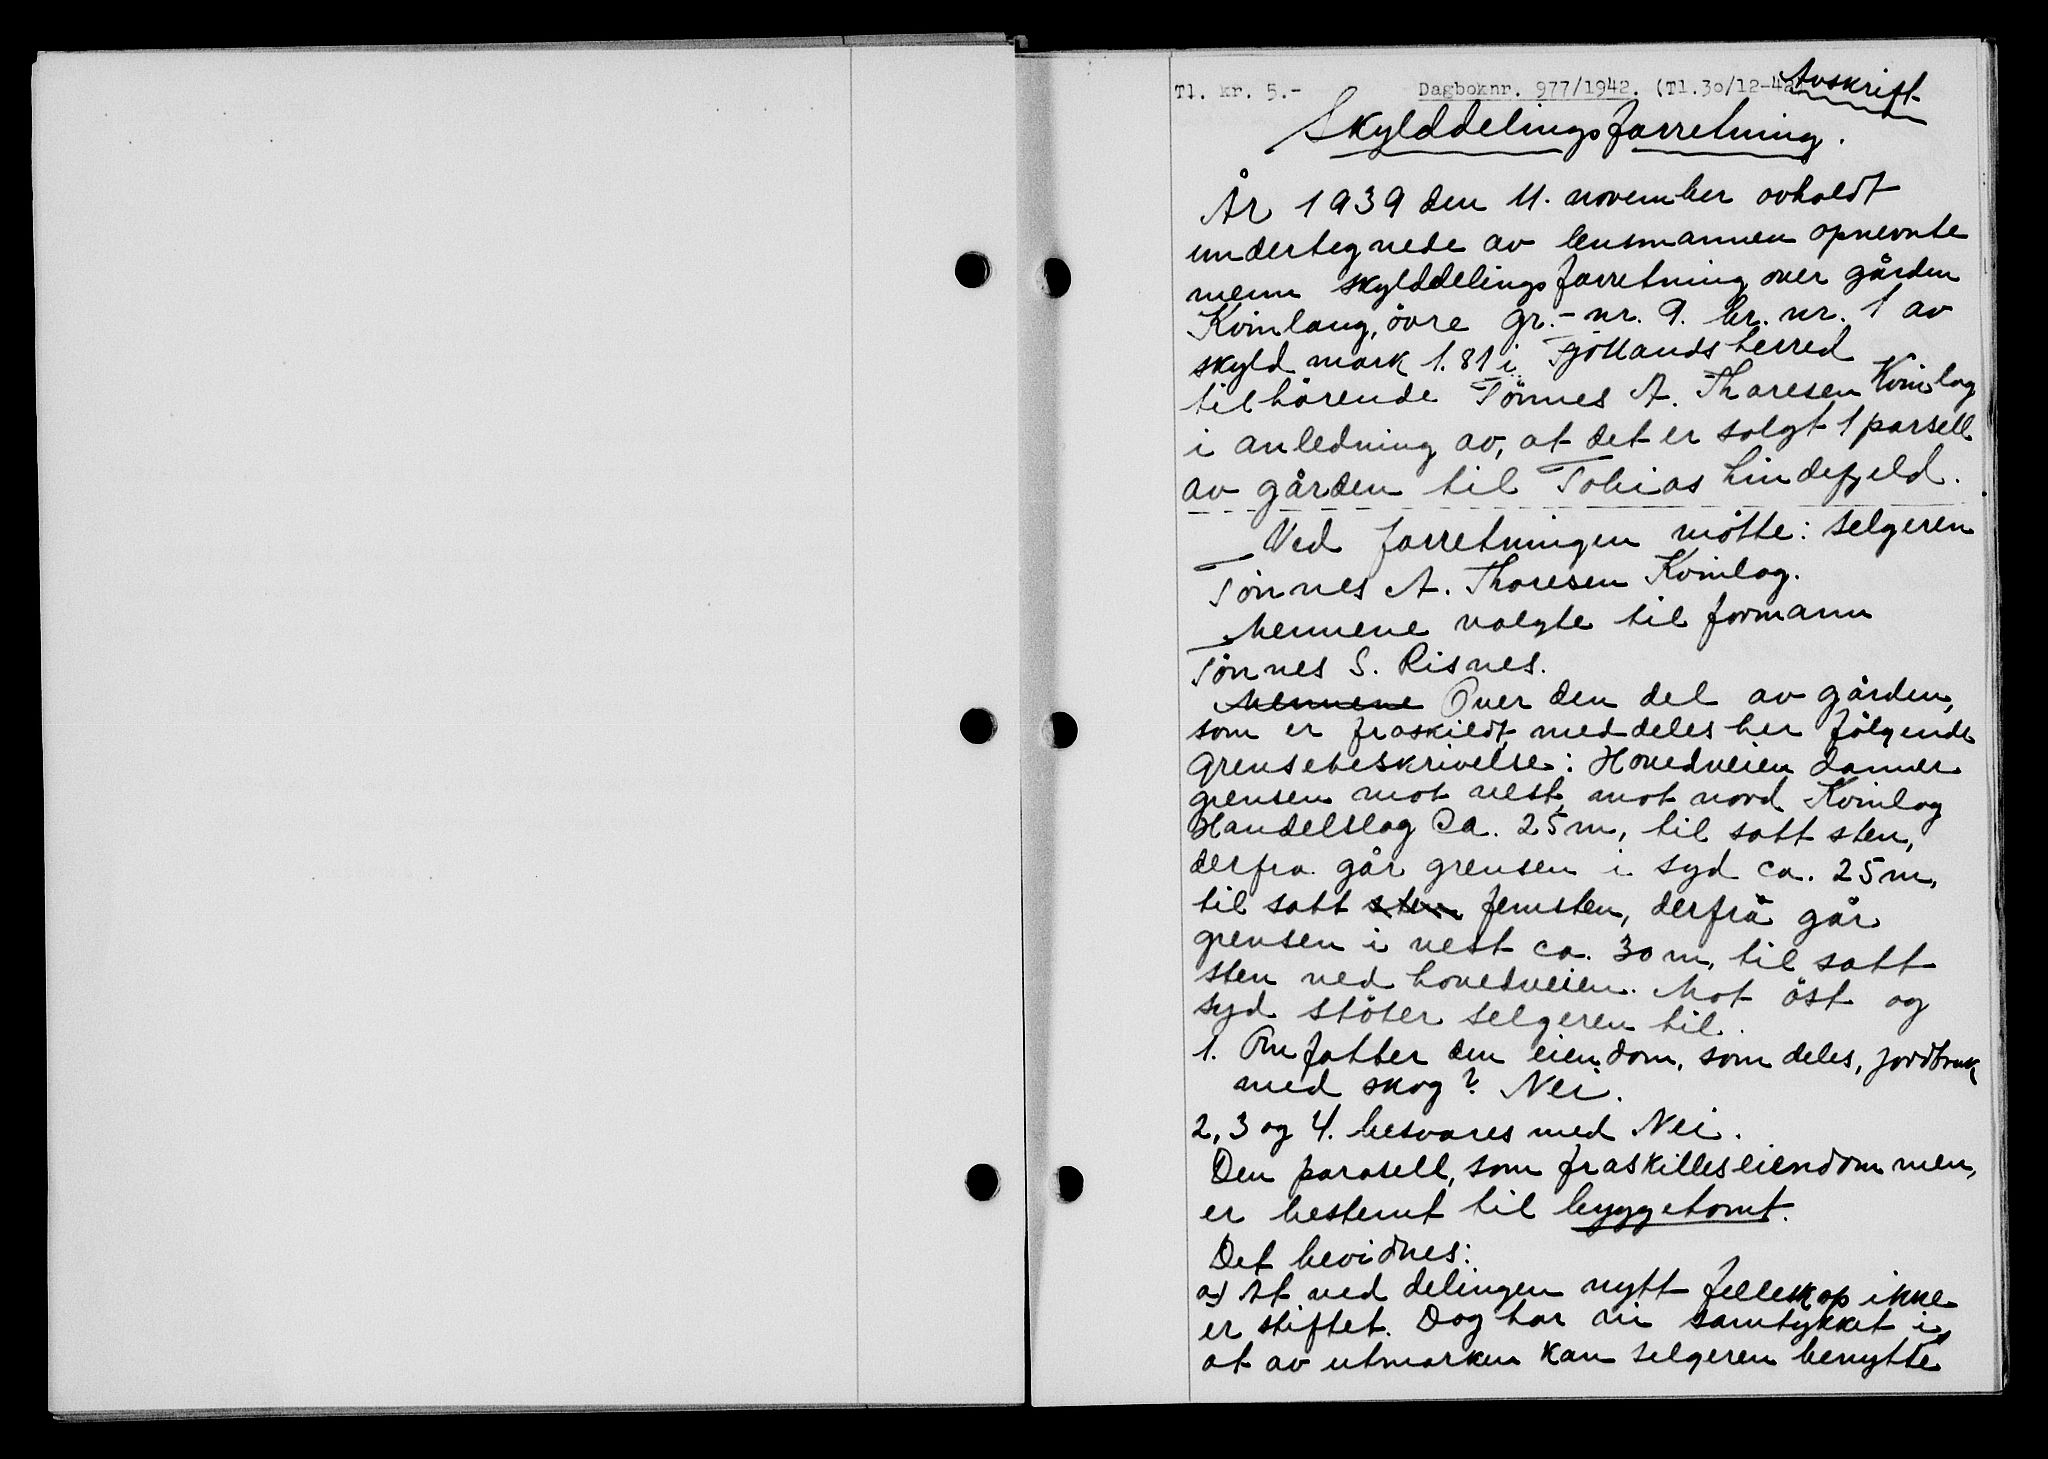 Tl. kr. 5.- Dagboknr. 977/1942. (Tl.30/12-42)
Avskrift
Skylddelingsforretning.
År 1939 den 11. november avholdt
undertegnede av lensmannen opnevnte
menn skylddelingsforretning over gården
Kvinlaug, övre gr.-nr. 9. br. nr. 1 av
skyld mark 1.81 i Fjotlands herred
tilhörende Tönnes A. Thoresen Kvinlog
i anledning av, at det er solgt 1 parsell
av gården til Tobias Lindefjeld.
Ved forretningen mötte: selgeren
Tönnes A. Thoresen Kvinlog.
Mennene valgte til formann
Tönnes S. Risnes.
Mennene Over den del av gården,
som er fraskildt, meddeles her fölgende
grensebeskrivelse: Hovedveien danner
grensen mot vest, mot nord Kvinlog
Handelslag ca. 25 m, til satt sten,
derfra går grensen i syd ca. 25 m,
til satt sten femsten, derfrå går
grensen i vest ca. 30 m, til satt
sten ved hovedveien. Mot öst og
syd stöter selgeren til.
1. Omfatter den eiendom, som deles, jordbruk
med skog? Nei.
2, 3 og 4. besvares med Nei.
Den parsell, som fraskilles eiendommen,
er bestemt til byggetomt.
Det bevidnes:
a) At ved delingen nytt felleskap ikke
er stiftet. Dog har vi samtykket i,
at av utmarken kan selgeren benytte